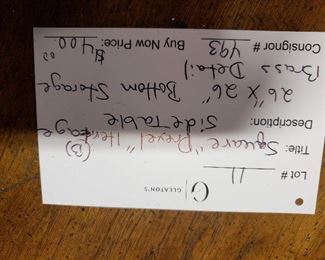 G | GLEATON'S
Lot # 11
Title: Square "Drexel" Heritage (B)
Description: Side Table
26" X 26" Bottom Storage
Brass Detail
Consignor # 493 Buy Now Price: $400.00